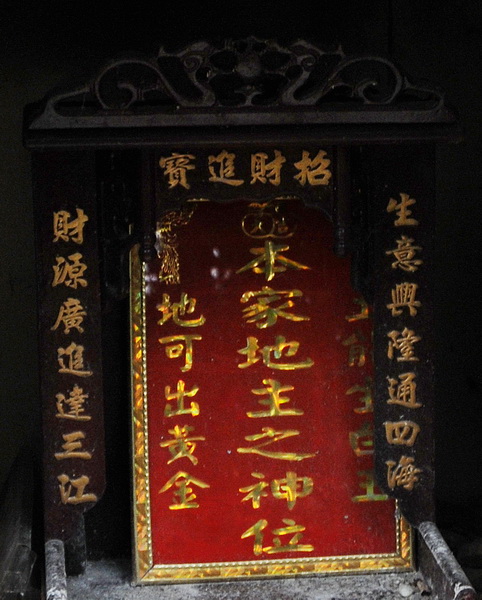 招財進寶
生意興隆通四海
土能生白玉
本家地主之神位
地可出黃金
財源廣進達三江